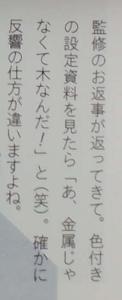 監修のお返事が返ってきて。色付き
の設定資料を見たら「あ、金属じゃ
なくて木なんだ！」と（笑）。確かに
反響の仕方が違いますよね。